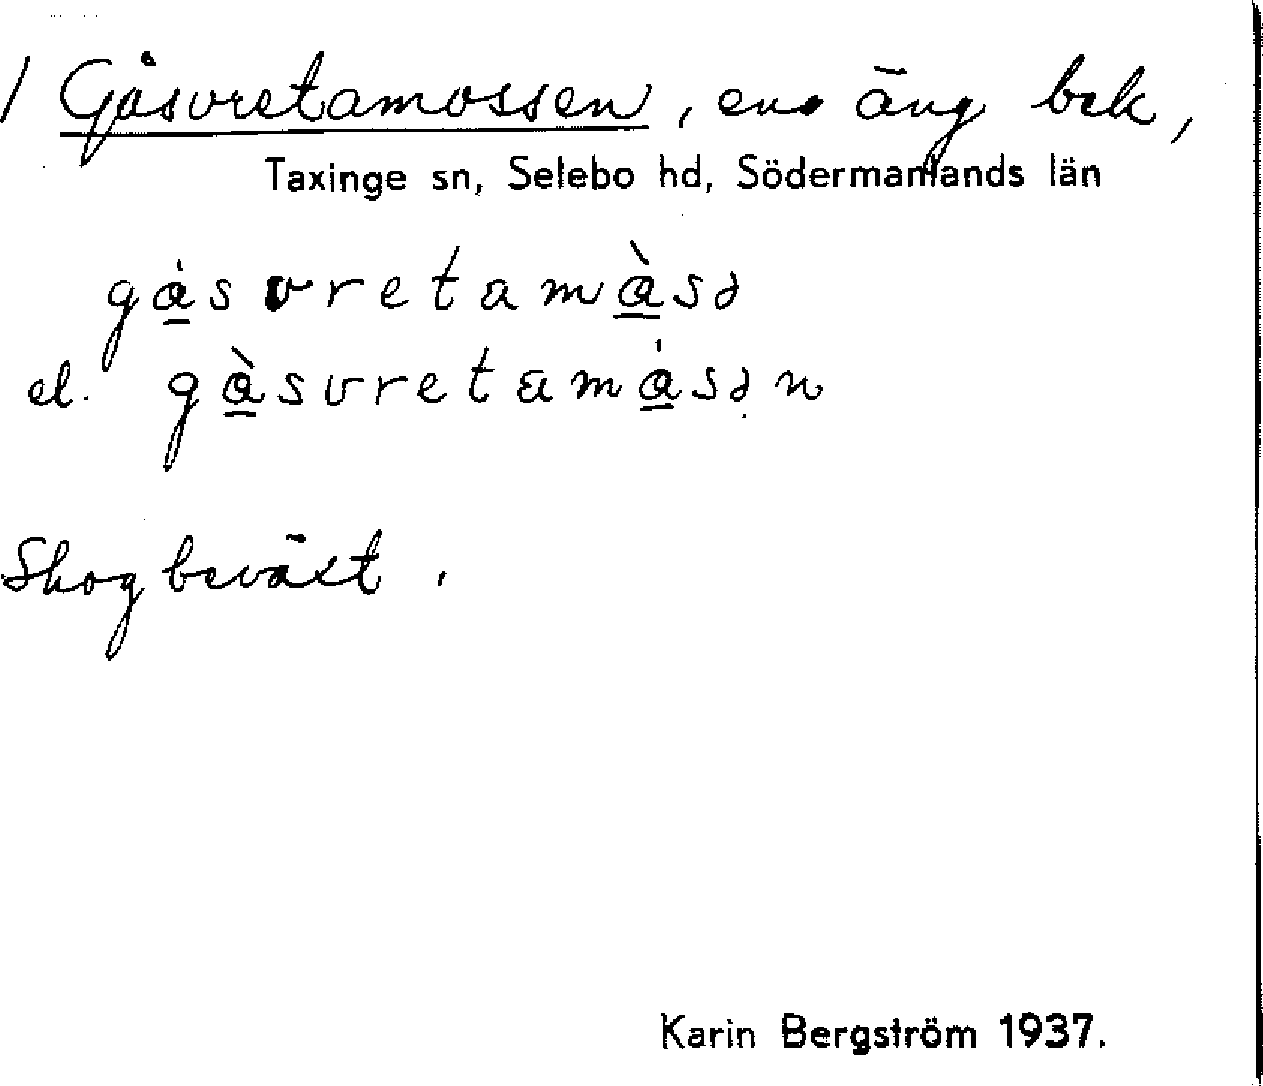 / Gåsvretamossen, ena äng bek,
Taxinge sn, Selebo hd, Södermanlands län
gåsvretamåsə
el. gåsvretamåsən
Skogbeväxt.
Karin Bergström 1937.